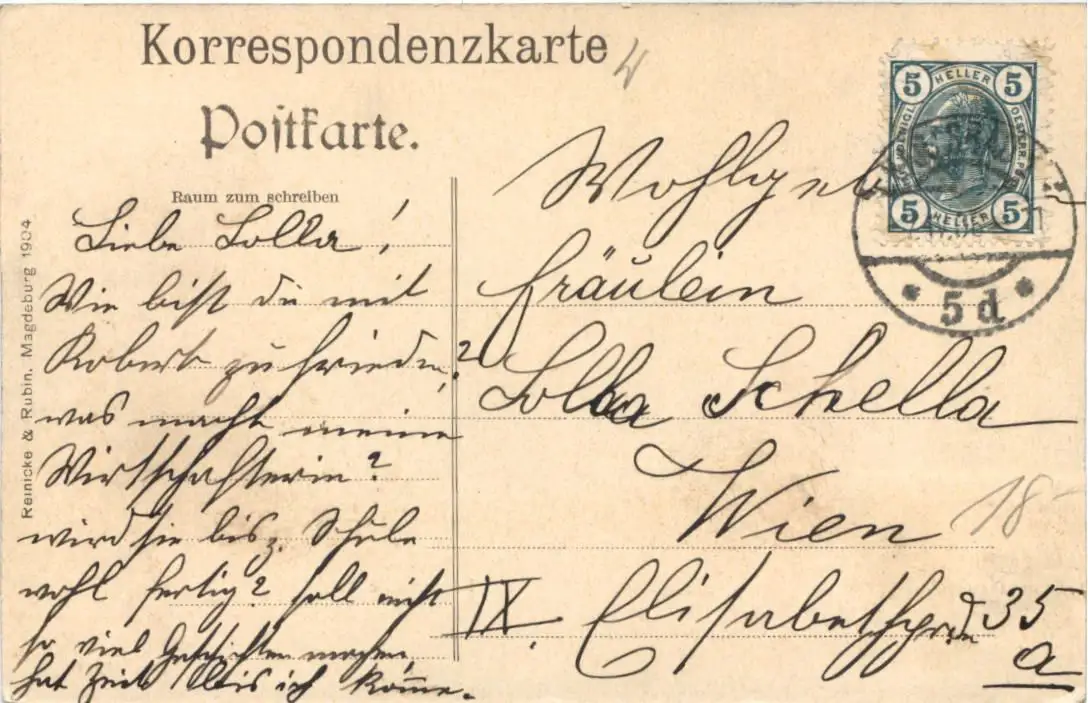 Korrespondenzkarte
Postkarte.
Raum zum schreiben
Reinicke & Rubin, Magdeburg 1904
Liebe Lolla!
Wie bist du mit
Robert zufrieden?
was macht meine
Wirtschafterin?
wird sie bis z. Schule
wohl fertig? soll nicht
so viel Geschichten machen,
hat Zeit bis ich komme.
5 HELLER 5
5 HELLER 5
5 d
Wohlgeb
Fräulein
Lolla Schella
Wien
18
IX. 35
a